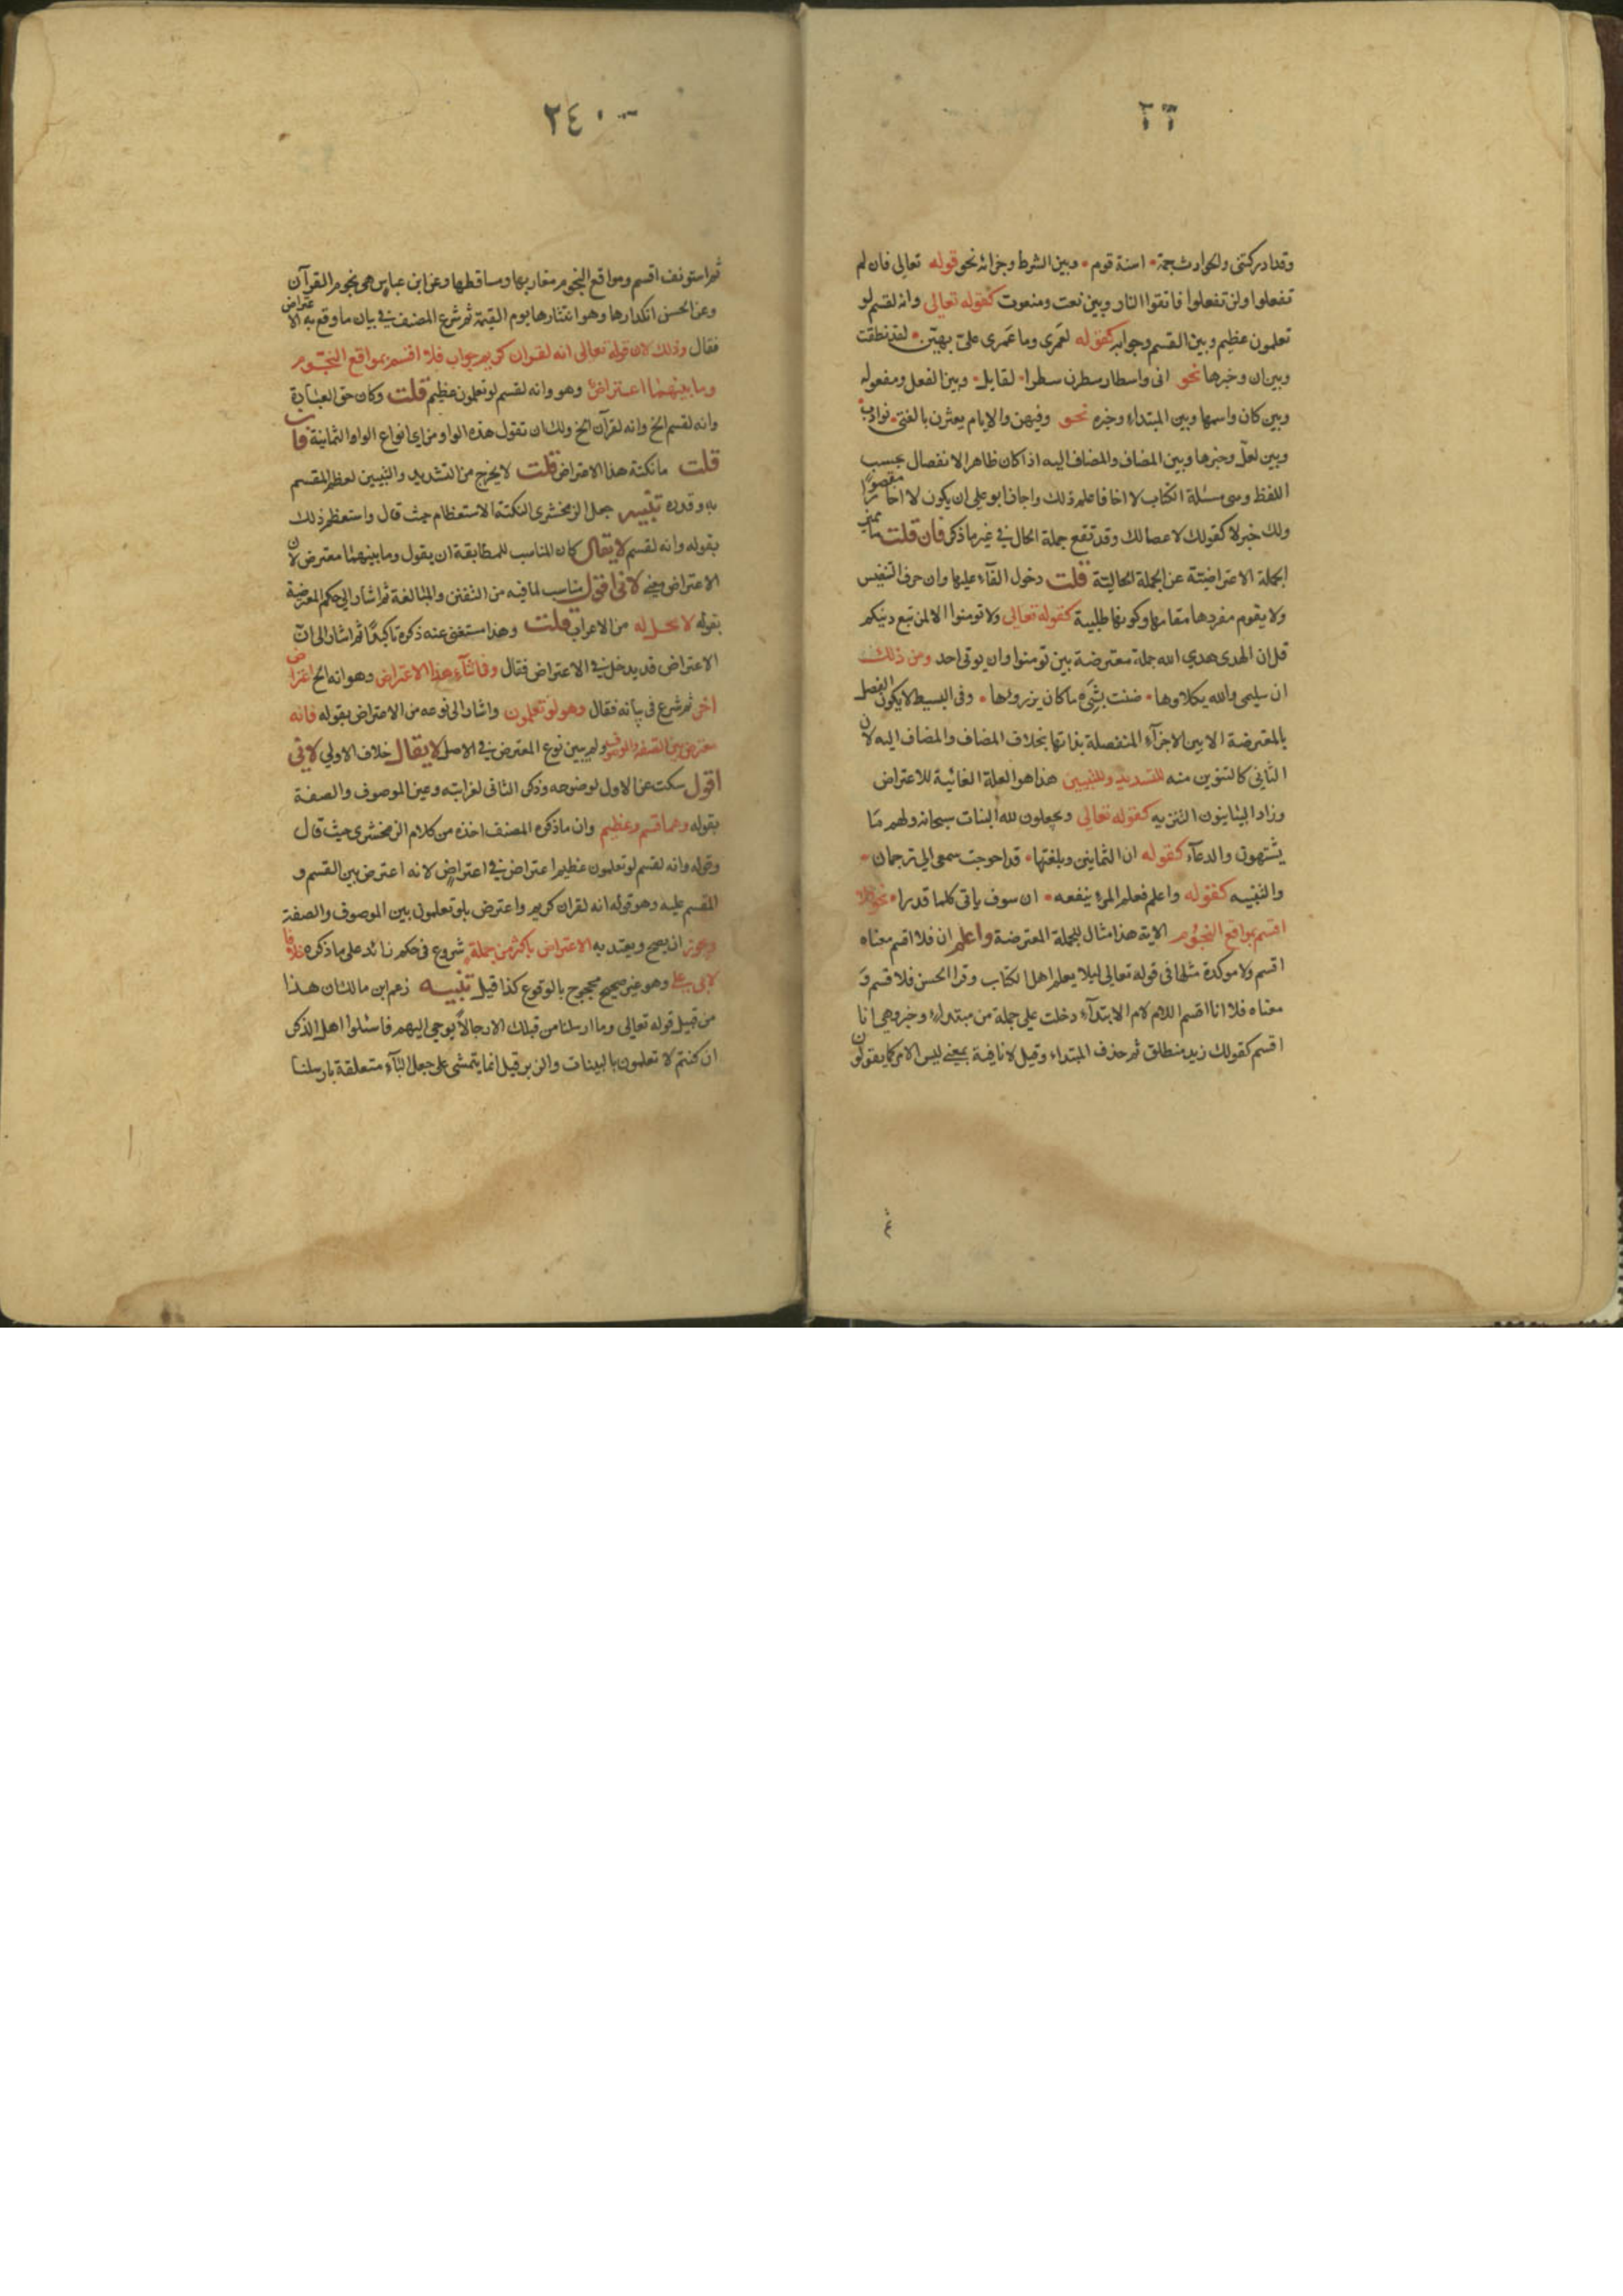 ٢٣
وقد ادركتني والحوادث جمة • اسنة قوم • وبين الشرط وجزائه نحو قوله تعالى فان لم
تفعلوا ولن تفعلوا فاتقوا النار وبين نعت ومنعوت كقوله تعالى وانه لقسم لو
تعلمون عظيم وبين القسم وجوابه كقوله لعمرى وما عمرى على بهيّن • لقد نطقت
وبين ان وخبرها نحو انى واسطار سطرن سطرا • لقايل • وبين الفعل ومفعوله
وبين كان واسمها وبين المبتداء وخبره نحو وفيهن والايام يعثرن بالفتى • نوادب •
وبين لعلّ وخبرها وبين المضاف والمضاف اليه اذا كان ظاهر الانفصال بحسب
اللفظ وسى مسئلة الكتاب لا اخا فاعلم ذلك واجاز ابو على ان يكون لا اخا مقصورا
ولك خبر لا كقولك لا عصا لك وقد تقع جملة الحال في غير ما ذكر فان قلت ما يميز
الجملة الاعتراضيّة عن الجملة الحاليّة قلت دخول الفآء عليها وان حرف التنفيس
ولا يقوم مفردها مقامها وكونها طلبية كقوله تعالى ولا تومنوا الا لمن تبع دينكم
قل ان الهدى هدي الله جملة معترضة بين تومنوا وان يوتى احد ومن ذلك
ان سليمى والله يكلاوها • ضنت بشيء ما كان يرزوها • وفى البسيط لا يكون الفصل
بالمعترضة الا بين الاجزآء المنفصلة بذاتها بخلاف المضاف والمضاف اليه لان
الثاني كالتنوين منه للتسديد وللتبيين هذا هو العلة الغائية للاعتراض
وزاد البيانيون التنزيه كقوله تعالى ويجعلون لله البنات سبحانه ولهم مّا
يشتهون والدعآء كقوله ان الثمانين وبلغتها • قد احوجت سمعى الي ترجمان •
والتنبيه كقوله واعلم فعلم المرء ينفعه • ان سوف ياتى كلما قدرا • نحو فلا
اقسم بمواقع النجوم الاية هذا مثال للجملة المعترضة واعلم ان فلا اقسم معناه
اقسم ولا موكدة مثلها فى قوله تعالى ليلا يعلم اهل الكتاب وقرا الحسن فلا قسم و
معناه فلا انا اقسم اللام لام الابتدآء دخلت على جملة من مبتداء وخبر وهي انا
اقسم كقولك زيد منطلق ثم حذف المبتداء وقيل لا نافية بمعنى ليس الامر كما يقولون
٢٤٠
ثم استونف اقسم ومواقع النجوم مغاربها ومساقطها وعن ابن عباس هى نجوم القرآن
وعن الحسن انكدارها وهو انتثارها يوم القيمة ثم شرع المصنف في بيان ما وقع به الاعتراض
فقال وذلك لان قوله تعالى انه لقران كريم جواب فلا اقسم بمواقع النجوم
وما بينهما اعتراض وهو وانه لقسم لو تعلمون عظيم قلت وكان حق العبادة
وانه لقسم الخ وانه لقرآن الخ ولك ان تقول هذه الواو من اي انواع الواوا الثمانية فان
قلت ما نكتة هذا الاعتراض قلت لا يخرج من التشديد والتبيين لعظم المقسم
به وقدره تنبيه جعل الزمخشرى النكتة الاستعظام حيث قال واستعظم ذلك
بقوله وانه لقسم لا يقال كان المناسب للمطابقة ان يقول وما بينهما معترض لان
الاعتراض معنى لانى اقول مناسب لما فيه من التفنن والمبالغة ثم اشار الى حكم المعترضة
بقوله لا محل له من الاعراب قلت وهذا مستغنى عنه ذكره تاكيدًا ثم اشار الى انّ
الاعتراض قد يدخل في الاعتراض فقال وفى اثنآء هذا الاعتراض وهو انه الخ اعتراض
اخر ثم شرع فى بيانه فقال وهو لو تعلمون واشار الى نوعه من الاعتراض بقوله فانه
معترض بين الصفة والموصوف ولم يبين نوع المعترض في الاصل لا يقال خلاف الاولي لانى
اقول سكت عن الاول لوضوحه وذكر الثانى لغرابته وعين الموصوف والصفة
بقوله وهما قسم وعظيم وان ما ذكره المصنف اخذه من كلام الزمخشرى حيث قال
وقوله وانه لقسم لو تعلمون عظيم اعتراض في اعتراض لانه اعترض بين القسم و
المقسم عليه وهو قوله انه لقران كريم واعترض بلو تعلمون بين الموصوف والصفة
ويجوز ان يصح ويعتد به الاعتراض باكثر من جملة شروع فى حكم زائد على ما ذكره خلافا
لابى على وهو غير صحيح محجوج بالوقوع كذا قيل تنبيه زعم ابن مالك ان هذا
من قبيل قوله تعالى وما ارسلنا من قبلك الا رجالاً يوحى اليهم فاسئلوا اهل الذكر
ان كنتم لا تعلمون بالبينات والزبر قيل انما يتمشى على جعل البآء متعلقة بارسلنا